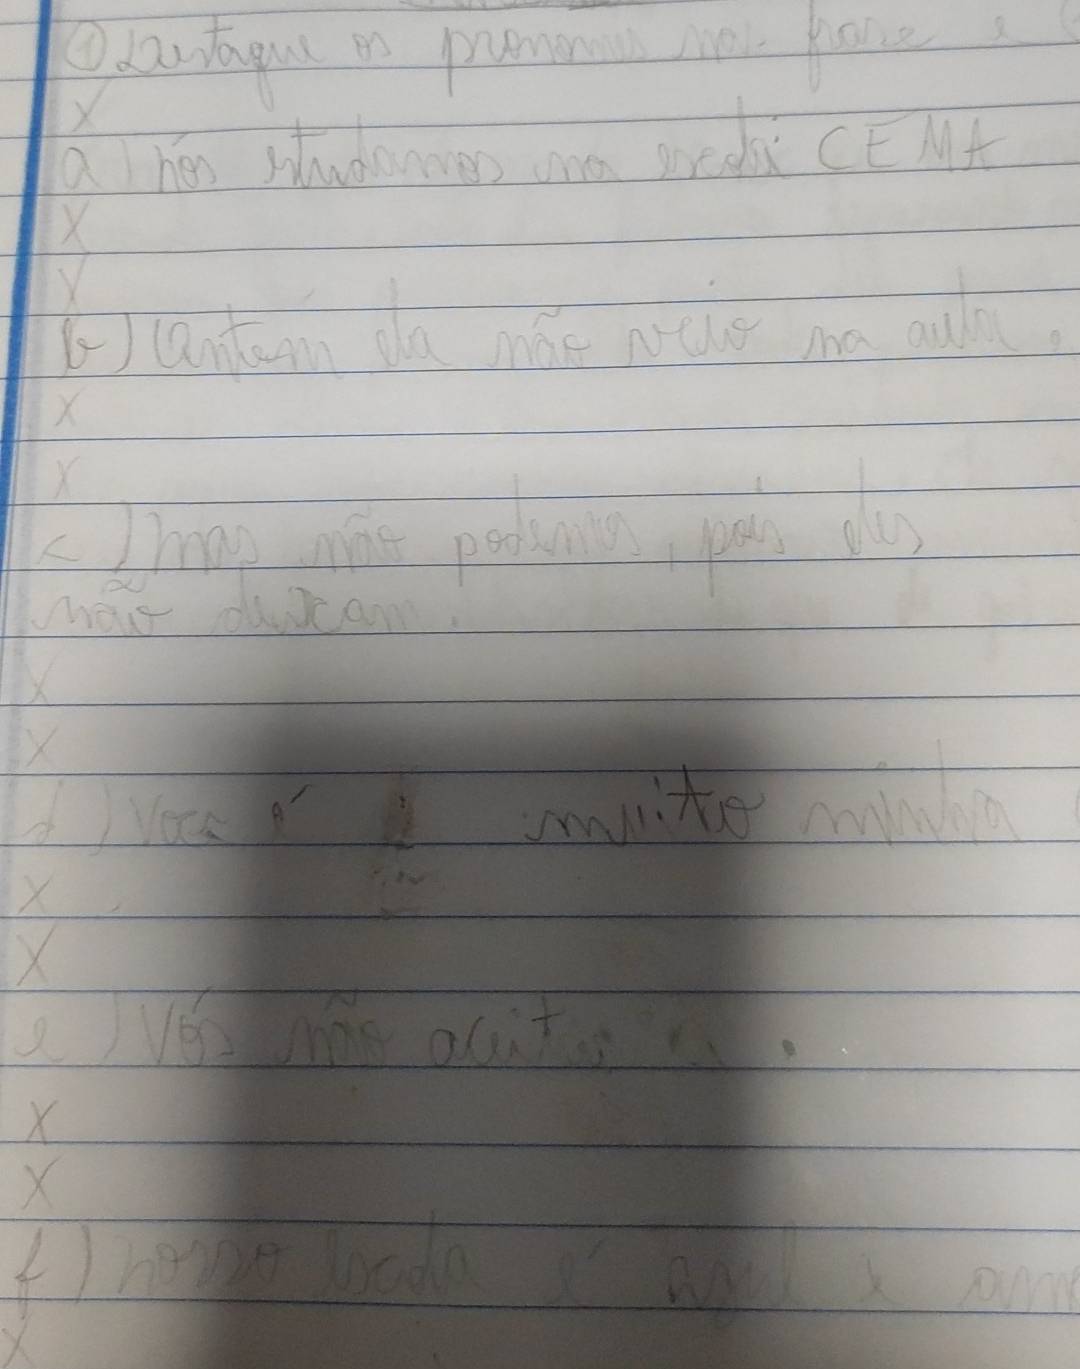 ① Destaque os pronomes nas frase e
X
a) nós estudamos na escola CEMA
X
X
b) Ontem ela não veio na aula.
X
X
c) mas não podemos, pois eles
não deixam.
X
X
d) Você é muito minha
X
X
e) Vós não
X
X
f) nosso escola é azul e am
X